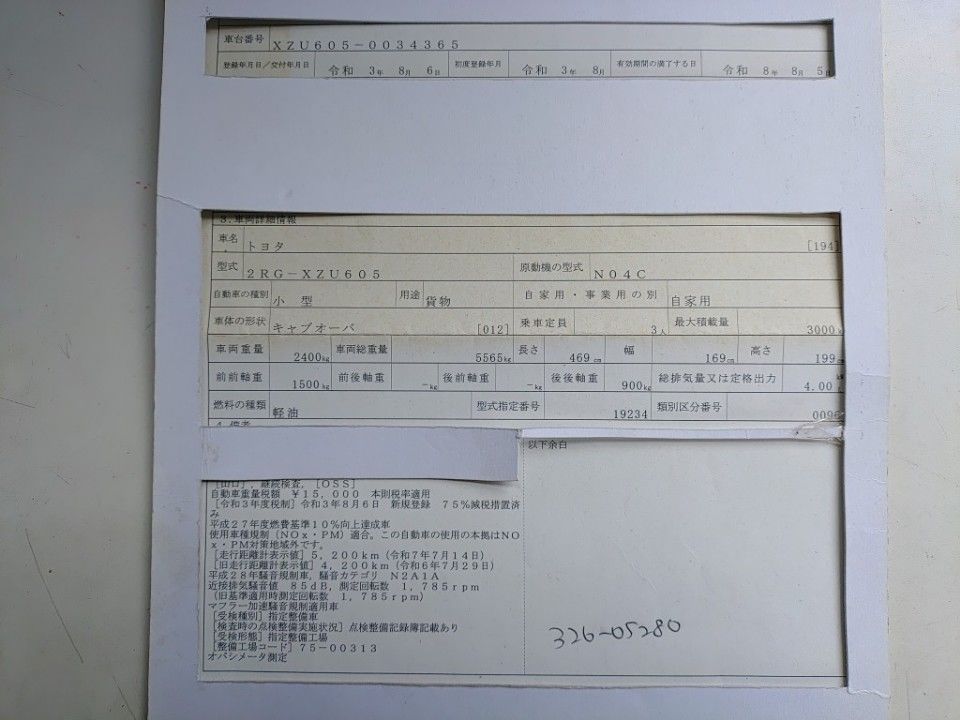 車台番号 XZU605-0034365
登録年月日/交付年月日 令和 3年 8月 6日 初度登録年月 令和 3年 8月 有効期間の満了する日 令和 8年 8月 5日
3.車両詳細情報
車名 トヨタ [194]
型式 2RG-XZU605 原動機の型式 N04C
自動車の種別 小型 用途 貨物 自家用・事業用の別 自家用
車体の形状 キャブオーバ [012] 乗車定員 3人 最大積載量 3000k
車両重量 2400kg 車両総重量 5565kg 長さ 469cm 幅 169cm 高さ 199c
前前軸重 1500kg 前後軸重 -kg 後前軸重 -kg 後後軸重 900kg 総排気量又は定格出力 4.00
燃料の種類 軽油 型式指定番号 19234 類別区分番号 0096
4.備考
以下余白
[山口],継続検査,[OSS]
自動車重量税額 ¥15,000 本則税率適用
[令和3年度税制]令和3年8月6日 新規登録 75%減税措置済
み
平成27年度燃費基準10%向上達成車
使用車種規制(NOx・PM)適合。この自動車の使用の本拠はNO
x・PM対策地域外です。
[走行距離計表示値]5,200km(令和7年7月14日)
[旧走行距離計表示値]4,200km(令和6年7月29日)
平成28年騒音規制車,騒音カテゴリ N2A1A
近接排気騒音値 85dB,測定回転数 1,785rpm
(旧基準適用時測定回転数 1,785rpm)
マフラー加速騒音規制適用車
[受検種別]指定整備車
[検査時の点検整備実施状況]点検整備記録簿記載あり
[受検形態]指定整備工場
[整備工場コード]75-00313
オパシメータ測定
326-05280